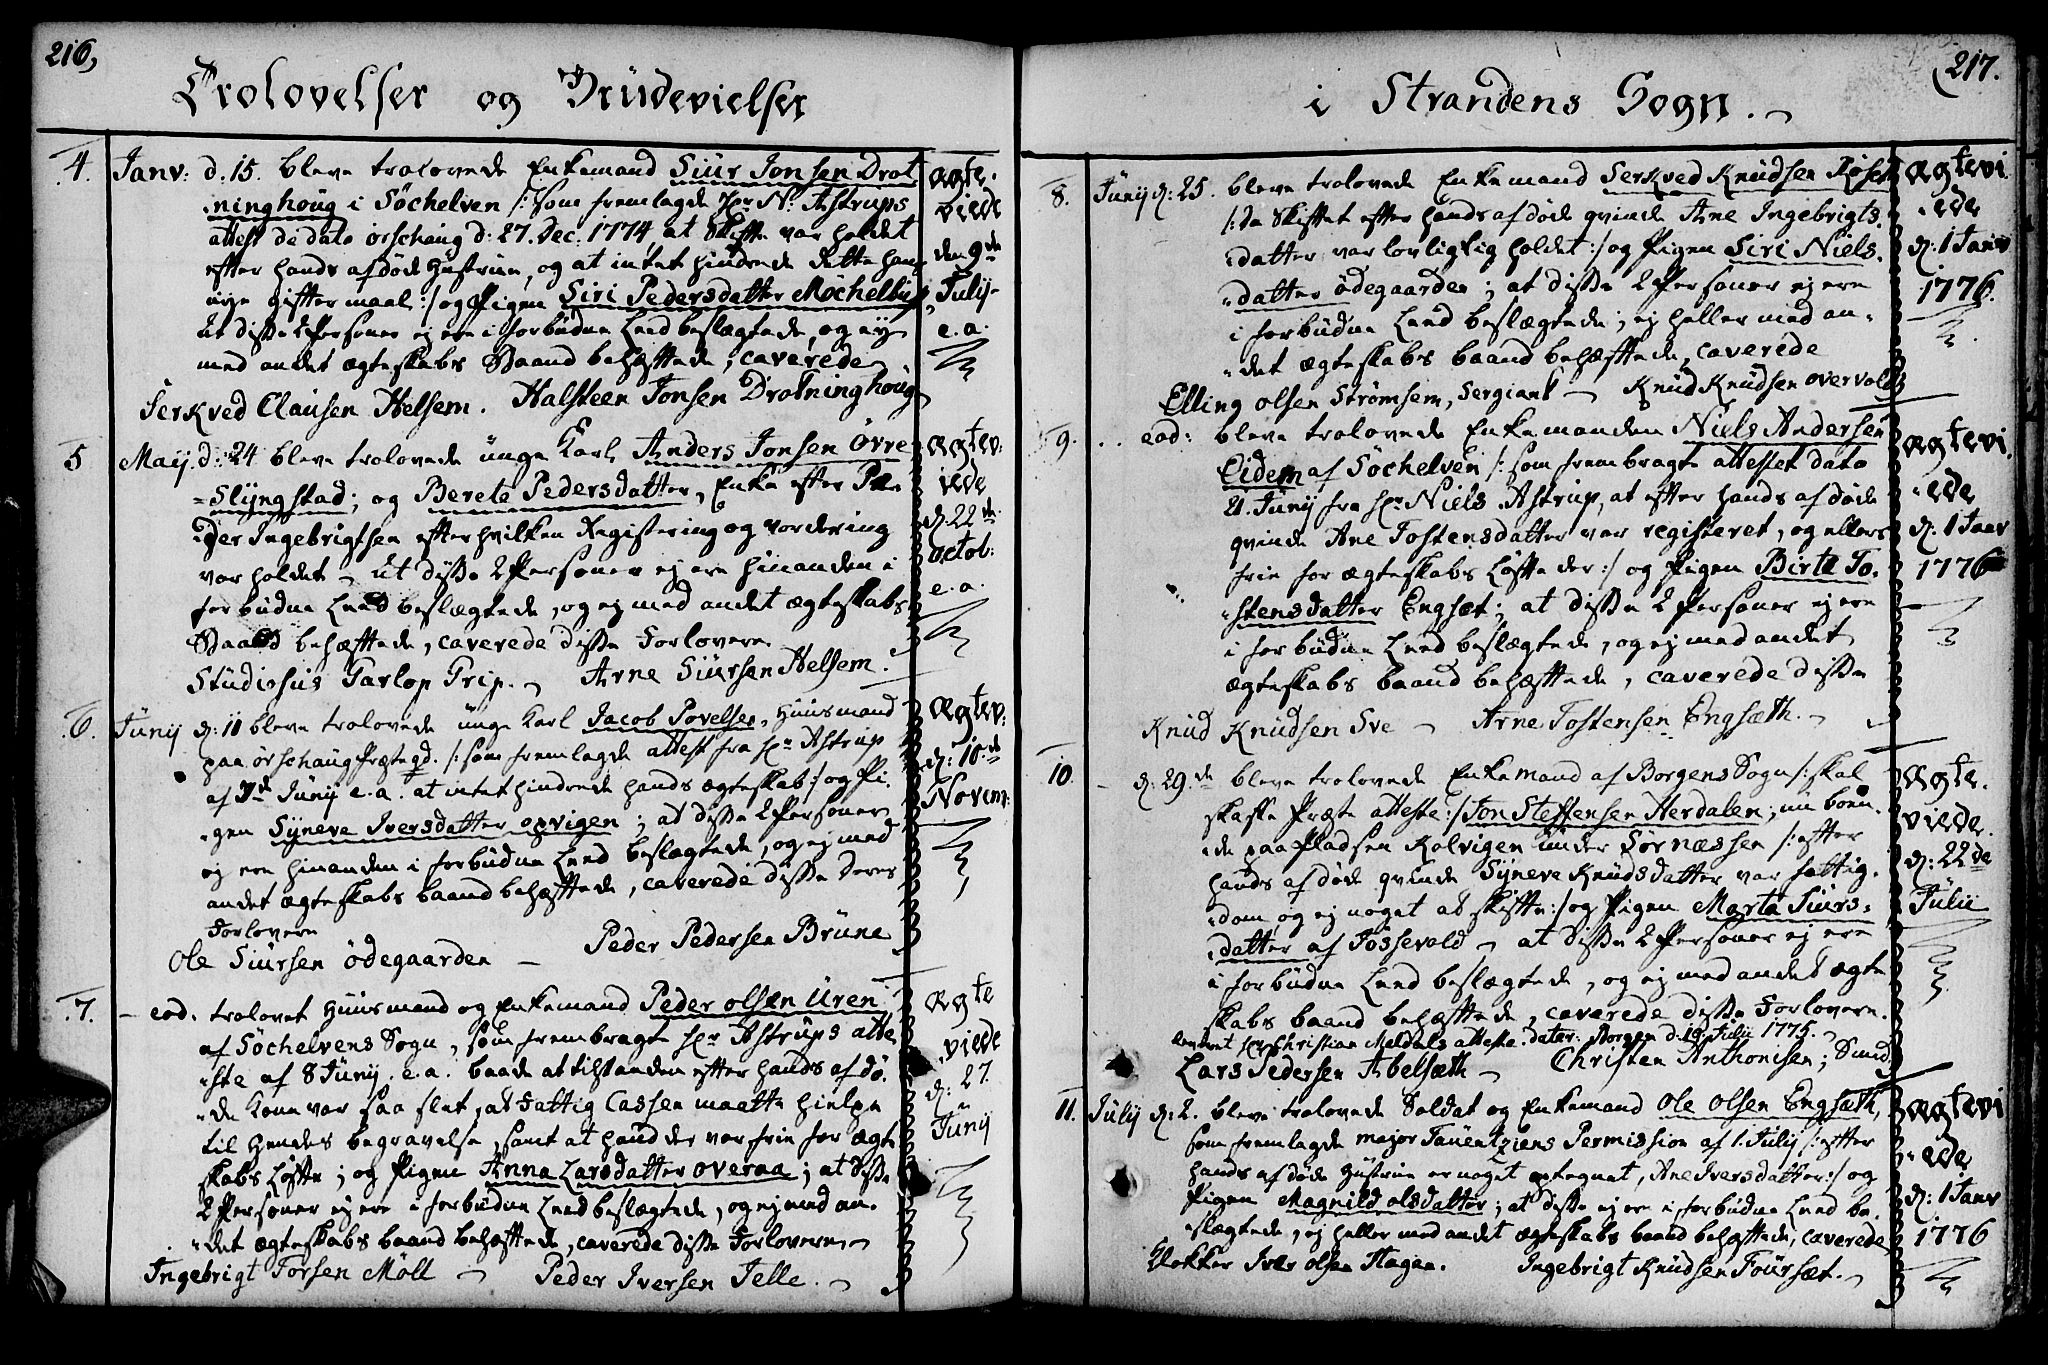 216,
Trolovelser og Brüdevielser
4. Janv: d. 15. bleve trolovede Enkemand Siur Jonsen Drot
ninghoug i Söchelven /: som fremlagde Hr N: Astrups
attest de dato örschoug d: 27. Dec: 1774, at Skifte var holdet
efter hands afdöde Hustrue, og at intet hindrede dette hans
nye giftermaal :/ og Pigen Siri Pedersdatter Möchelbüst,
At disse 2 Personer ej ere i forbudne Leed beslægtede, og ey
med andet ægteskabs Baand behæftede, caverede
Serkved Clausen Helsem. Halsteen Jonsen Drotninghoug
ægte-
viede
den 9de
Julij
e. a.
5 Maij. d: 24 bleve trolovede unge Karl Anders Jonsen Övre
Slyngstad; og Berete Pedersdatter, Enke efter Pe
der Ingebrigtsen efter hvilken Registering og vordering
var holdet - At disse 2 Personer ej ere hinanden i
forbudne Leed beslægtede, og ej med andet ægteskabs
Baand behæftede, caverede disse Forlovere
Stüdiosüs Tarlop Trip. Arne Siursen Helsem.
ægtev:
iede
d. 22de
octob:
e. a.
6. Junij d: 11 bleve trolovede unge Karl Jacob Povelsen, Huusmand
paa örschoug Præstegd. /: som fremlagde attest fra Hr Astrup
af 7de Junij e. a. at intet hindrede hands ægteskab :/ og Pi-
gen Syneve Iversdatter opvigen; at disse 2 Personer
ej ere hinanden i forbudne Leed beslægtede, og ej med
andet ægteskabs baand behæftede, caverede disse deres
Forlovere
Ole Siursen ödegaarden - Peder Pedersen Brüne
ægtev:
d: 10de
Novem:
7. - eod. trolovet Huusmand og Enkemand Peder olsen Uren
af Söchelvens Sogn, som frembragte Hr Astrups atte
ste af 8 Junij e. a. baade at tilstanden efter hands afdö-
de Kone var saa slet, at Fattig Cassen maatte hielpe
til Hendes begravelse, samt at hand der var frie for ægte
skabs Löfte; og Pigen Anna Larsdatter overaa; at disse
2 Personer ej ere i forbudne Leed beslægtede, og ej med an-
det ægteskabs baand behæftede, caverede disse Forlovere
Ingebrigt Torsen Möll - Peder Iversen Jelle.
ægte
viede
d: 27.
Junij
217.
i Strandens Sogn.
8. Junij d: 25. bleve trolovede Enkemand Serkved Knudsen Röset
/: da Skiftet efter hands afdöde qvinde Ane Ingebrigts-
datter var lovligtig holdet :/ og Pigen Siri Niels-
datter ödegaarden; at disse 2 Personer ej ere
i forbudne Leed beslægtede; ej heller med an-
det ægteskabs baand behæftede, caverede
Elling olsen Strömsem, Sergiant - Knud Knudsen overvold
ægtevi
ede
d: 1 Janv
1776.
9. - eod: bleve trolovede Enkemanden Niels Andersen
Eidem af Söchelven /: som frembragte attestet dato
21. Junij fra Hr: Niels Astrup, at efter hands afdöde
qvinde Ane Tostensdatter var registeret, og ellers
frie for ægteskabs Löfte der :/ og Pigen Birte To-
stensdatter Engsæt; at disse 2 Personer ej ere
i forbudne Leed beslægtede, og ej med andet
ægteskabs baand behæftede, caverede disse
Knud Knudsen Sve - Arne Tostensen Engsæth.
ægtevi
ede
d: 1 Janv
1776
10. - d: 29de bleve trolovede Enkemand af Borgens Sogn /: skal
skaffe Præste atteste :/ Jon Steffensen Herdalen, nu boen-
de paa Pladsen Kolvigen under Sornæssen /: efter
hands afdöde qvinde Syneve Knudsdatter var fattig-
dom, og ej noget at skifte :/ og Pigen Marta Siurs-
datter af Fossevold - at disse 2 Personer ej ere
i forbudne Leed beslægtede, og ej med andet ægte
skabs baand behæftede, caverede disse Forlovere.
leveret Hr Christian Meldals atteste dater: Borgen d. 19 Julij 1775.
Lars Pedersen Abelsæth - Christen Anthonisen, Smed
ægte-
viede
d: 22de
Julii
11. Julij d: 2. bleve trolovede Soldat og Enkemand Ole olsen Engsæth,
som fremlagde major Tauentziens Permission af 1. Julij /: efter
hands afdöde Hustrue er noget optegnet, Ane Iversdatter :/ og
Pigen Magnild olsdatter; at disse ej ere i forbudne Leed be-
slægtede, ej heller med andet ægteskabs baand behæftede, caverede
Klokker Iver olsen Hagen. Ingebrigt Knudsen Foursæt.
ægtevi
ede
d: 1 Janv
1776